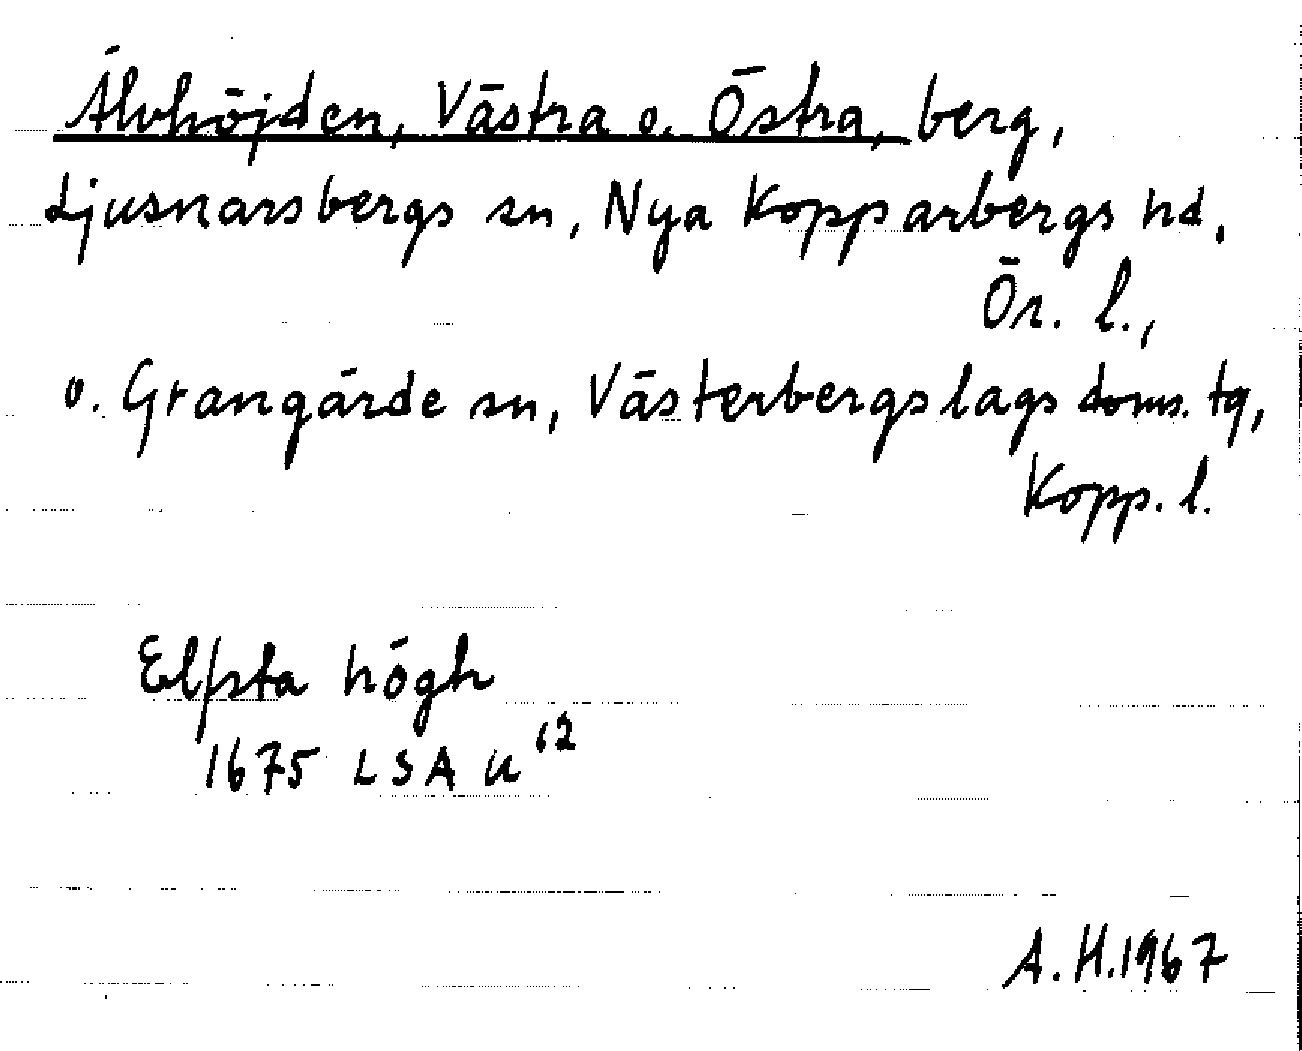 Älvhöjden, Västra o. Östra, berg,
Ljusnarsbergs sn, Nya Kopparbergs hd,
Ör. l.,
o. Grangärde sn, Västerbergslags doms. tg,
Kopp. l.
Elfsta högh
1675 LSA U 62
A.H.1967